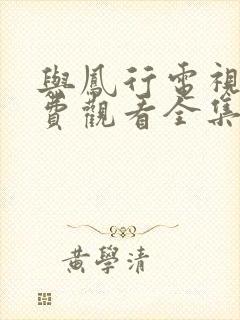 與鳳行電視
費觀看全集
黃學清